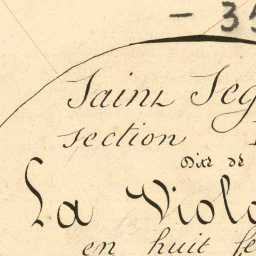 - 35
Saint Seg
Section
Dite de
La Viola
en huit fe